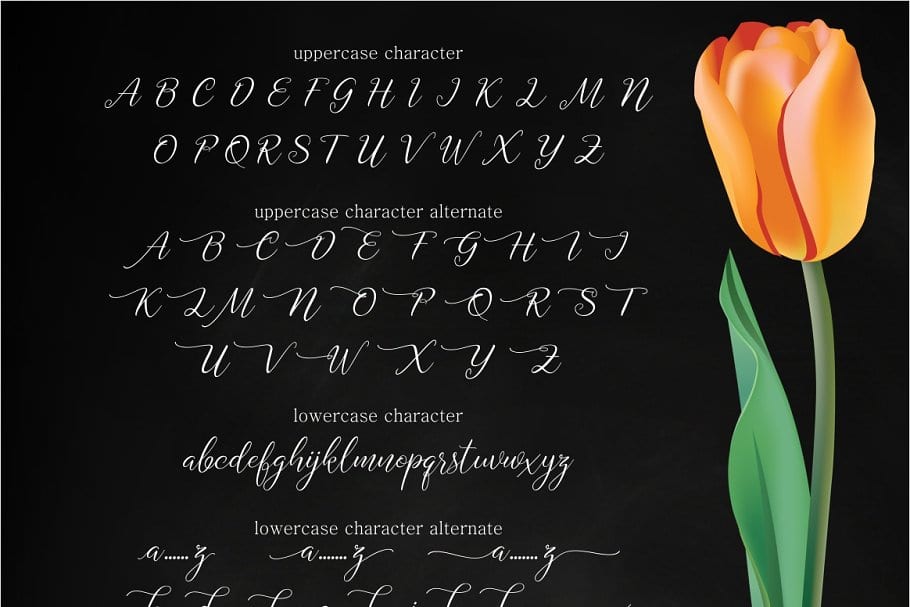 uppercase character
A B C D E F G H I J K L M N
O P Q R S T U V W X Y Z
uppercase character alternate
A B C D E F G H I J
K L M N O P Q R S T
U V W X Y Z
lowercase character
abcdefghijklmnopqrstuvwxyz
lowercase character alternate
a......z a.......z a.......z